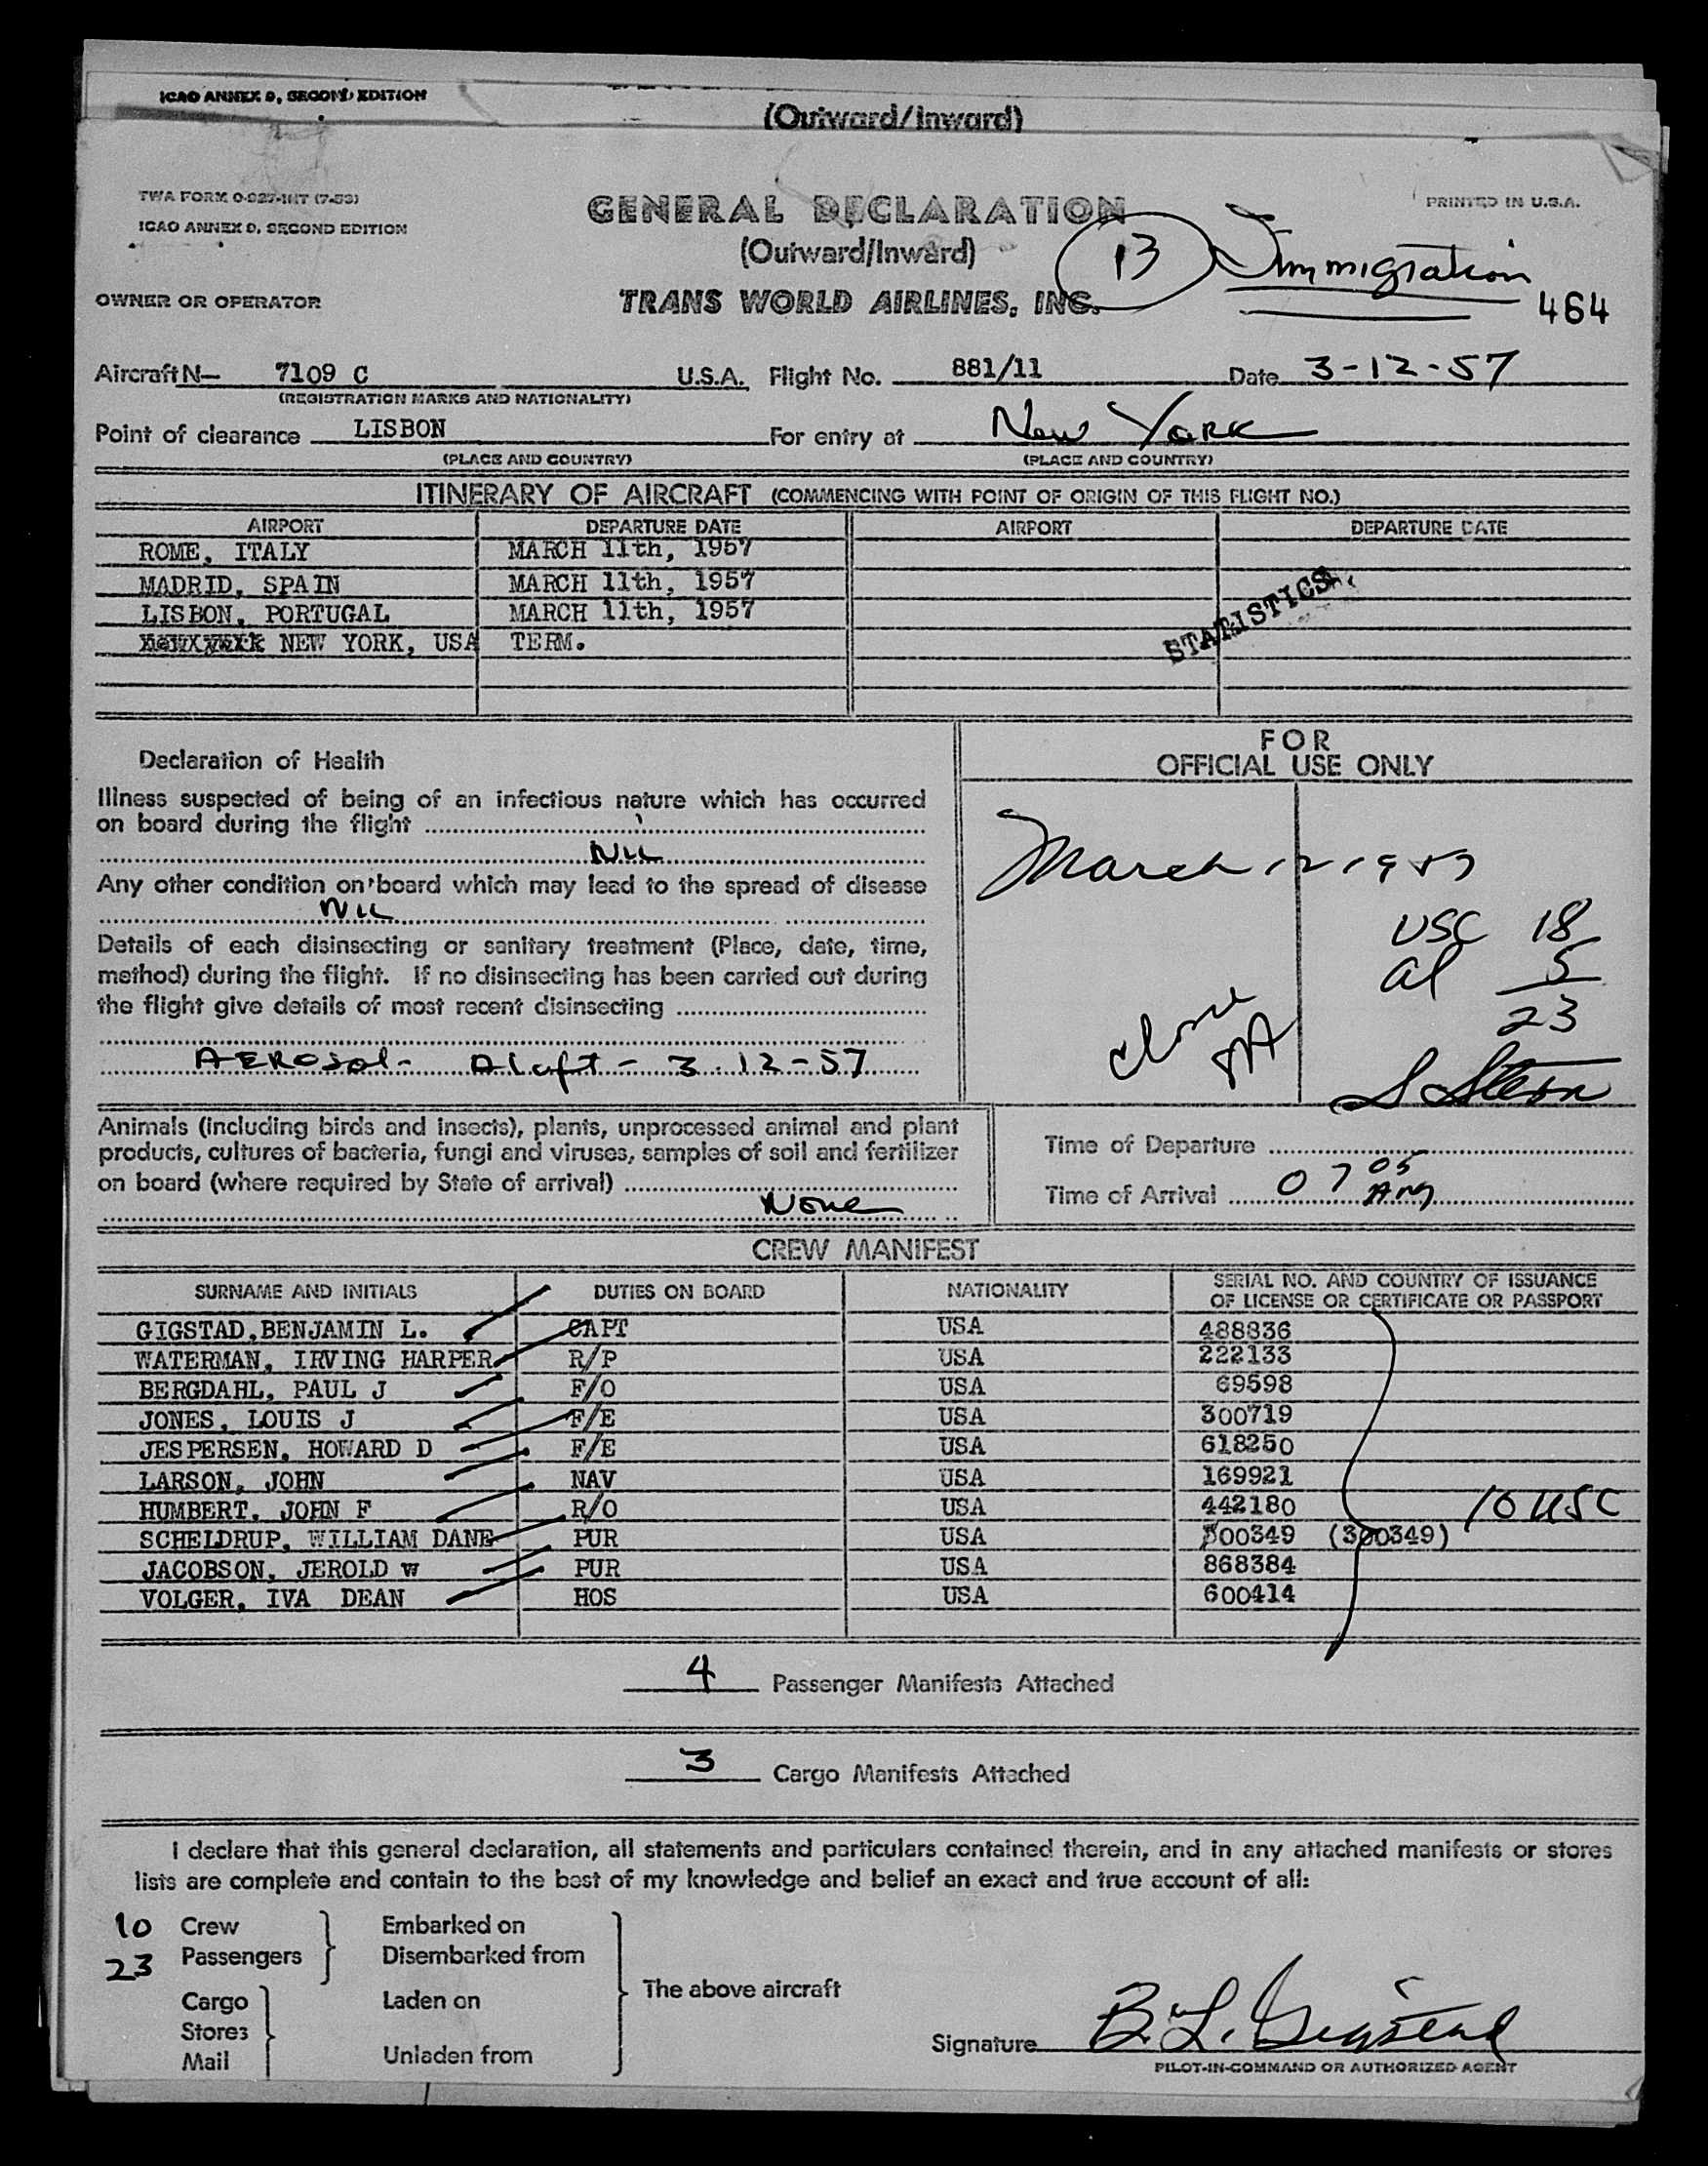 ICAO ANNEX 9, SECOND EDITION
(Outward/Inward)
TWA FORM O-927-INT (7-53)
ICAO ANNEX 9, SECOND EDITION
PRINTED IN U.S.A.
GENERAL DECLARATION
(Outward/Inward)
13 Immigration
OWNER OR OPERATOR
TRANS WORLD AIRLINES, INC.
464
Aircraft N— 7109 C U.S.A. Flight No. 881/11 Date 3-12-57
(REGISTRATION MARKS AND NATIONALITY)
Point of clearance LISBON For entry at New York
(PLACE AND COUNTRY) (PLACE AND COUNTRY)
ITINERARY OF AIRCRAFT (COMMENCING WITH POINT OF ORIGIN OF THIS FLIGHT NO.)
AIRPORT DEPARTURE DATE AIRPORT DEPARTURE DATE
ROME, ITALY MARCH 11th, 1957
MADRID, SPAIN MARCH 11th, 1957
LISBON, PORTUGAL MARCH 11th, 1957
NEW YORK, USA TERM.
STATISTICS
Declaration of Health
FOR
OFFICIAL USE ONLY
Illness suspected of being of an infectious nature which has occurred
on board during the flight
NIL
Any other condition on board which may lead to the spread of disease
NIL
Details of each disinsecting or sanitary treatment (Place, date, time,
method) during the flight. If no disinsecting has been carried out during
the flight give details of most recent disinsecting
AEROSOL - Aloft - 3-12-57
March 12 1957
USC 18
al 5
23
S Stern
Animals (including birds and insects), plants, unprocessed animal and plant
products, cultures of bacteria, fungi and viruses, samples of soil and fertilizer
on board (where required by State of arrival)
None
Time of Departure
Time of Arrival 07 05 AM
CREW MANIFEST
SURNAME AND INITIALS DUTIES ON BOARD NATIONALITY SERIAL NO. AND COUNTRY OF ISSUANCE
OF LICENSE OR CERTIFICATE OR PASSPORT
GIGSTAD,BENJAMIN L. CAPT USA 488836
WATERMAN, IRVING HARPER R/P USA 222133
BERGDAHL, PAUL J F/O USA 69598
JONES, LOUIS J F/E USA 300719
JESPERSEN, HOWARD D F/E USA 618250
LARSON, JOHN NAV USA 169921
HUMBERT, JOHN F R/O USA 442180 10 USC
SCHELDRUP, WILLIAM DANE PUR USA 300349 (300349)
JACOBSON, JEROLD W PUR USA 868384
VOLGER, IVA DEAN HOS USA 600414
4 Passenger Manifests Attached
3 Cargo Manifests Attached
I declare that this general declaration, all statements and particulars contained therein, and in any attached manifests or stores
lists are complete and contain to the best of my knowledge and belief an exact and true account of all:
10 Crew Embarked on
23 Passengers Disembarked from
The above aircraft
Cargo Laden on
Stores
Mail Unladen from
Signature B. L. Gigstad
PILOT-IN-COMMAND OR AUTHORIZED AGENT